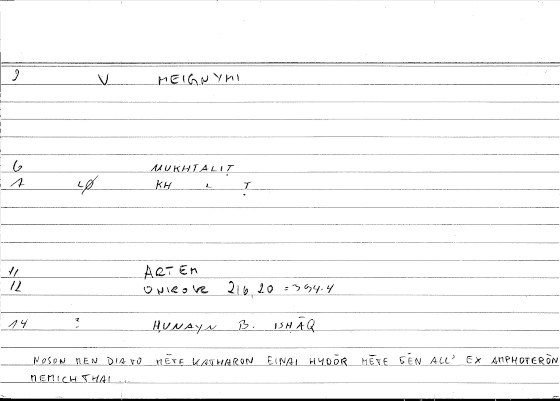 2 V MEIGNYMI
6 MUKHTALIṬ
7 LØ KH L Ṭ
11 ARTEM
12 ONIROCR 216,20 = 394.4
14 ? ḤUNAYN B. ISḤĀQ
NOSON MEN DIA TO MĒTE KATHARON EINAI HYDŌR MĒTE GĒN ALL' EX AMPHOTERŌN
MEMICHTHAI ...